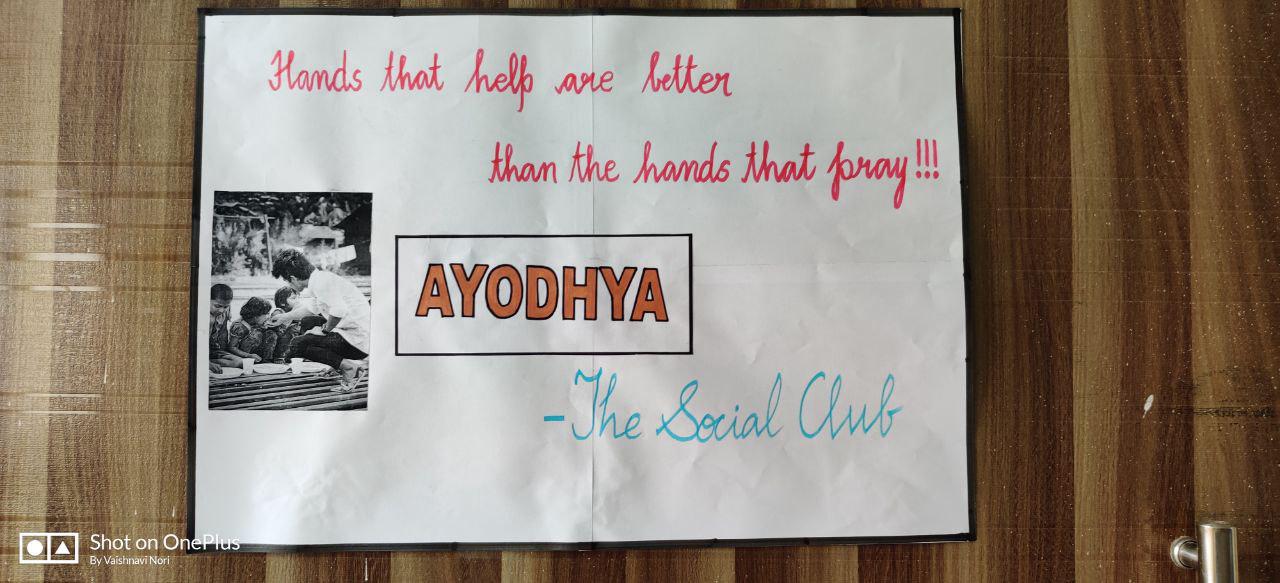 Hands that help are better
than the hands that pray!!!
AYODHYA
-The Social Club
Shot on OnePlus
By Vaishnavi Nori